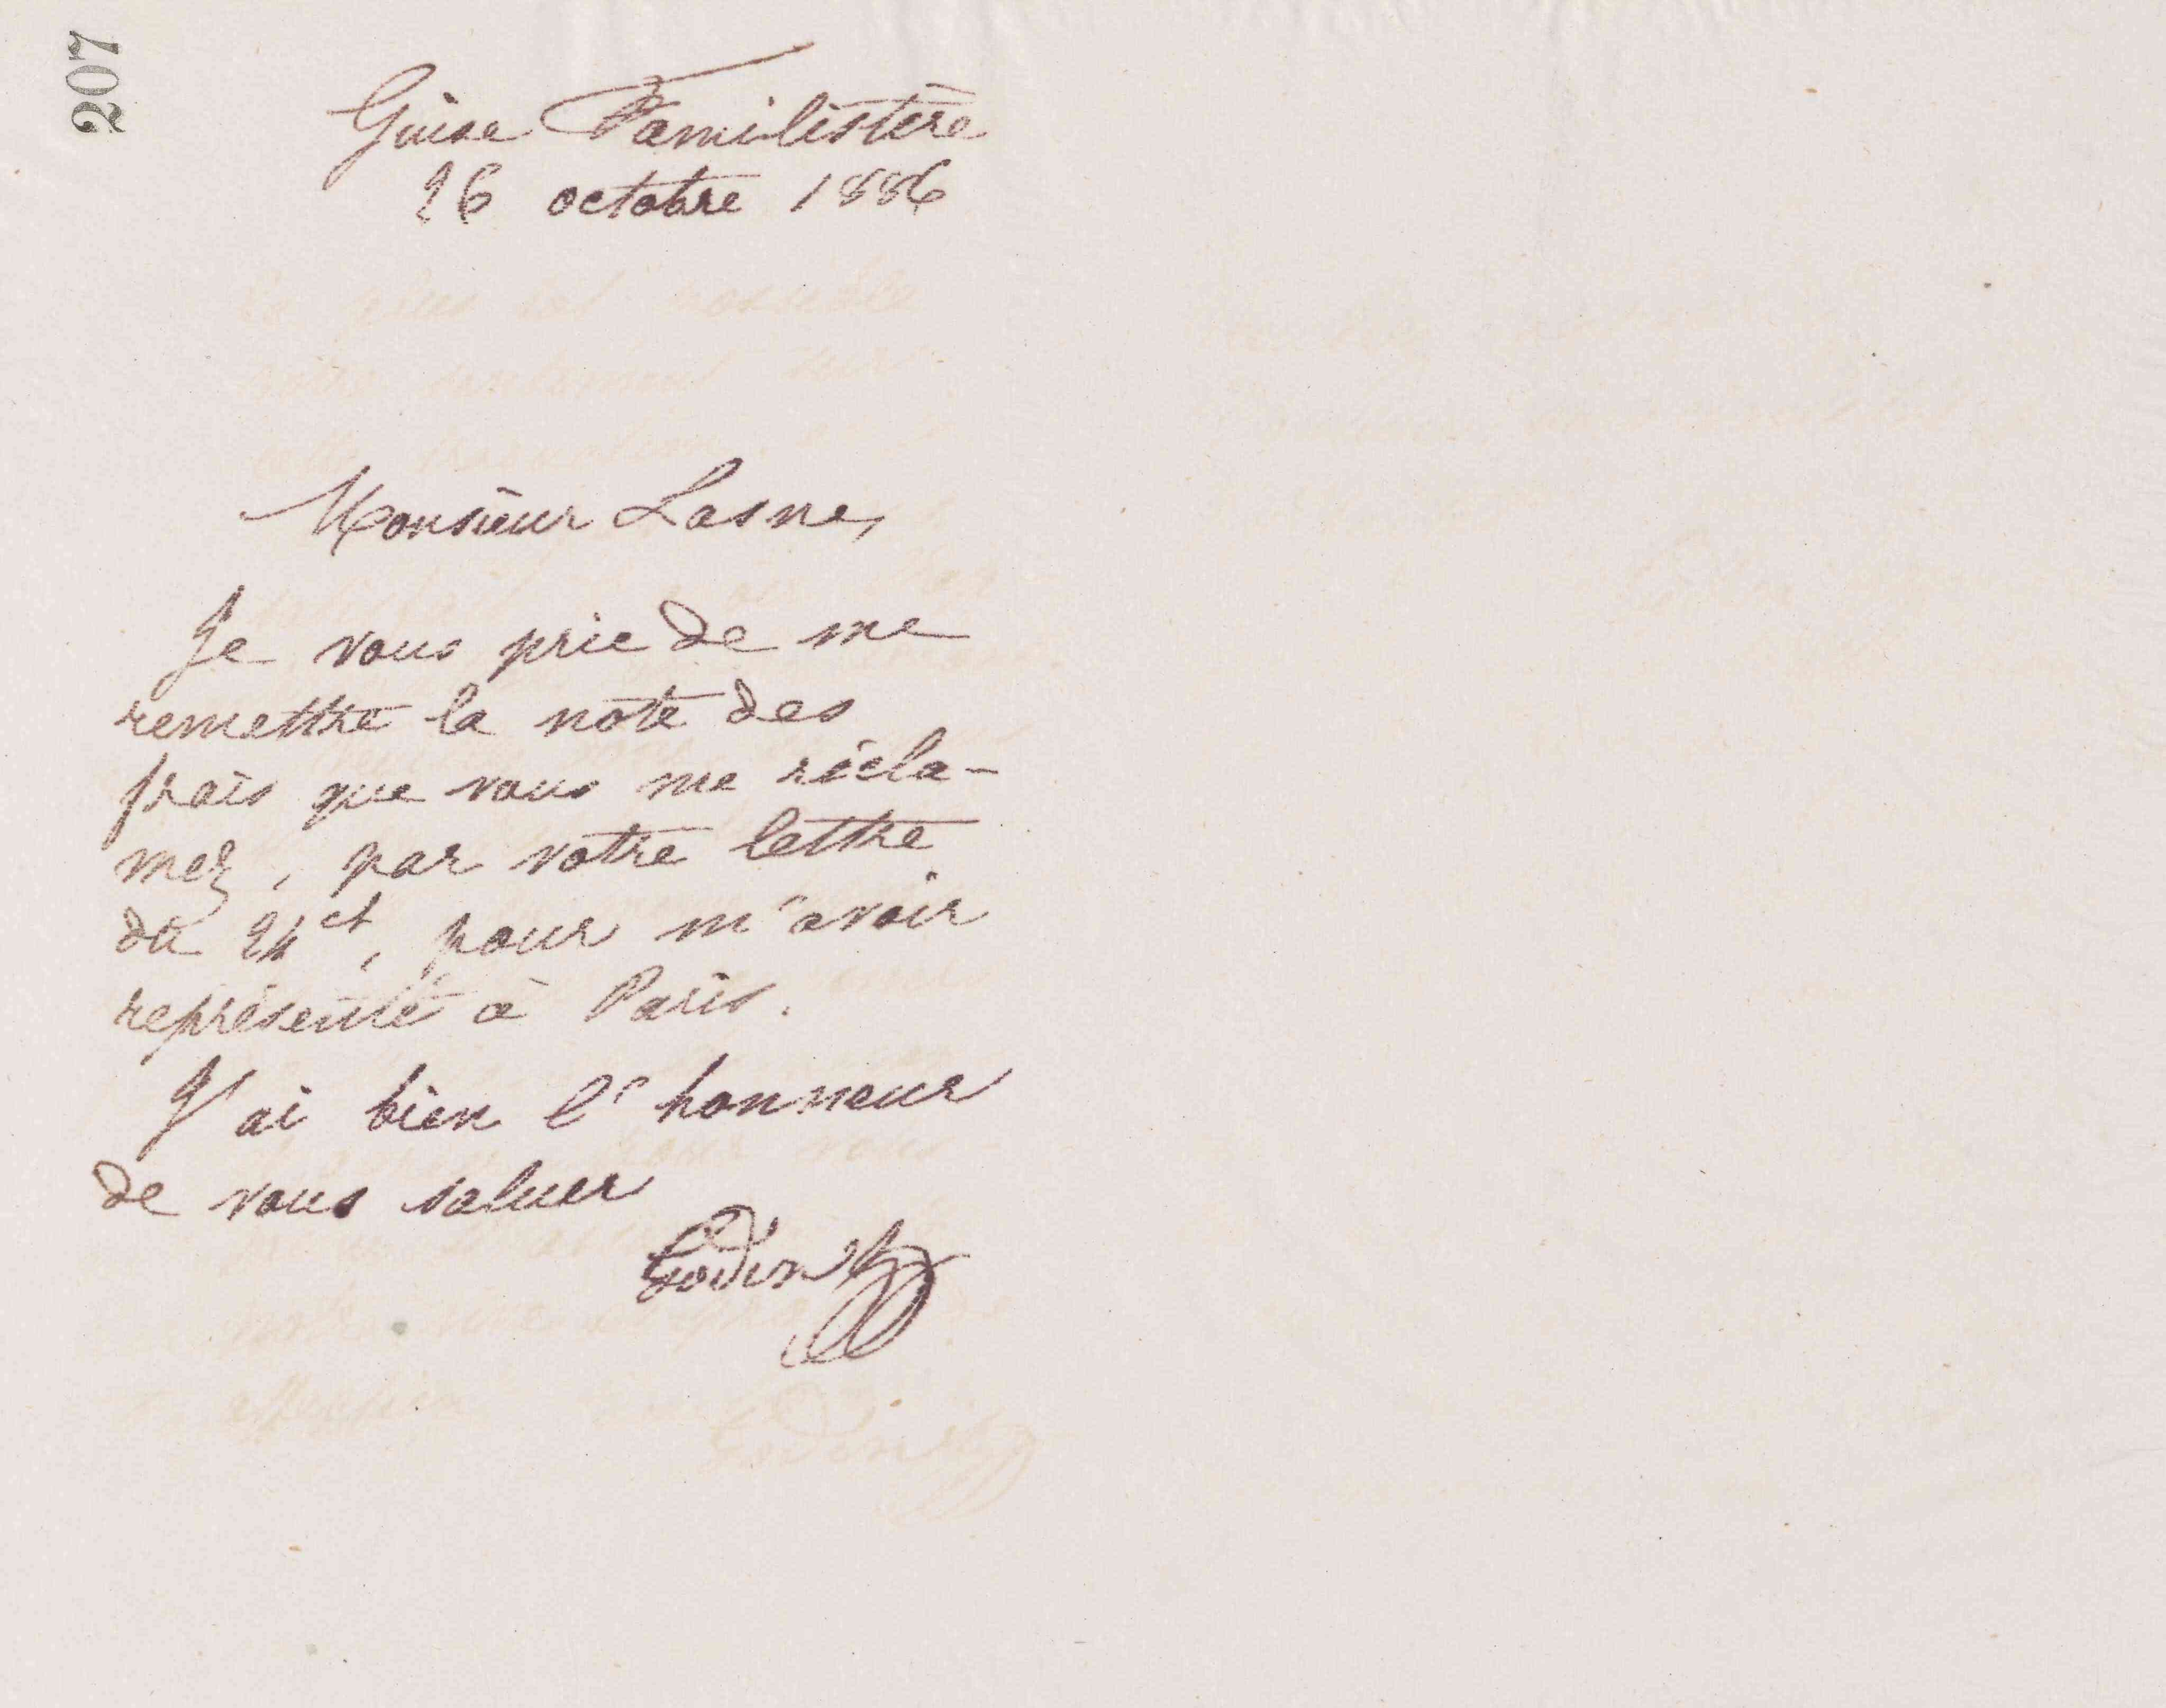 207
Guise Familistère
26 octobre 1886
Monsieur Lasne,
Je vous prie de me
remettre la note des
frais que vous me récla-
mez, par votre lettre
du 24 ct, pour m'avoir
représenté à Paris.
J'ai bien l'honneur
de vous saluer
Godin